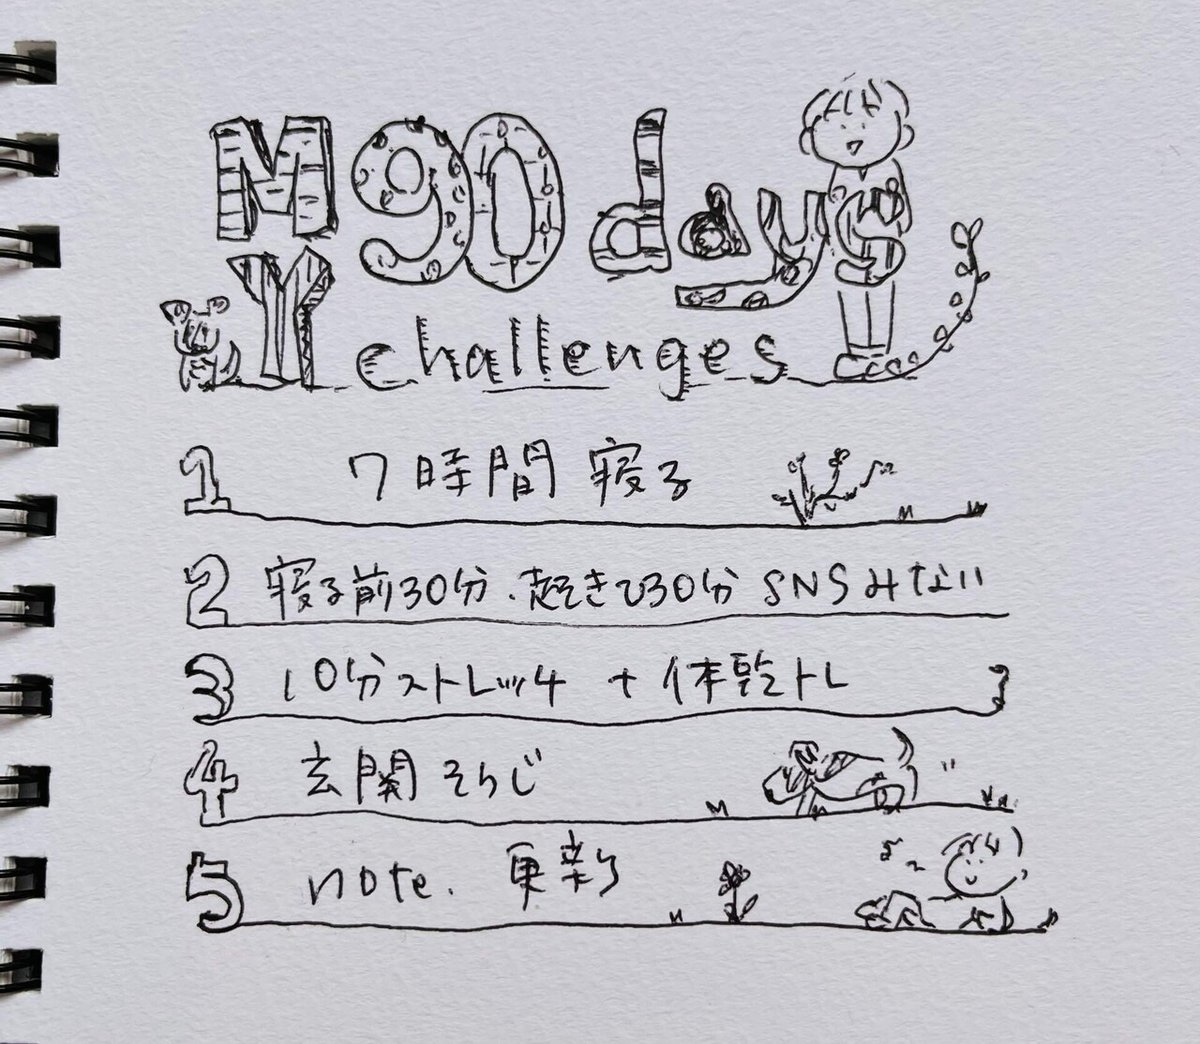 MY 90 days
challenges
1 7時間 寝る
2 寝る前30分、起きて30分 SNSみない
3 10分ストレッチ + 体幹トレ
4 玄関そうじ
5 note. 更新